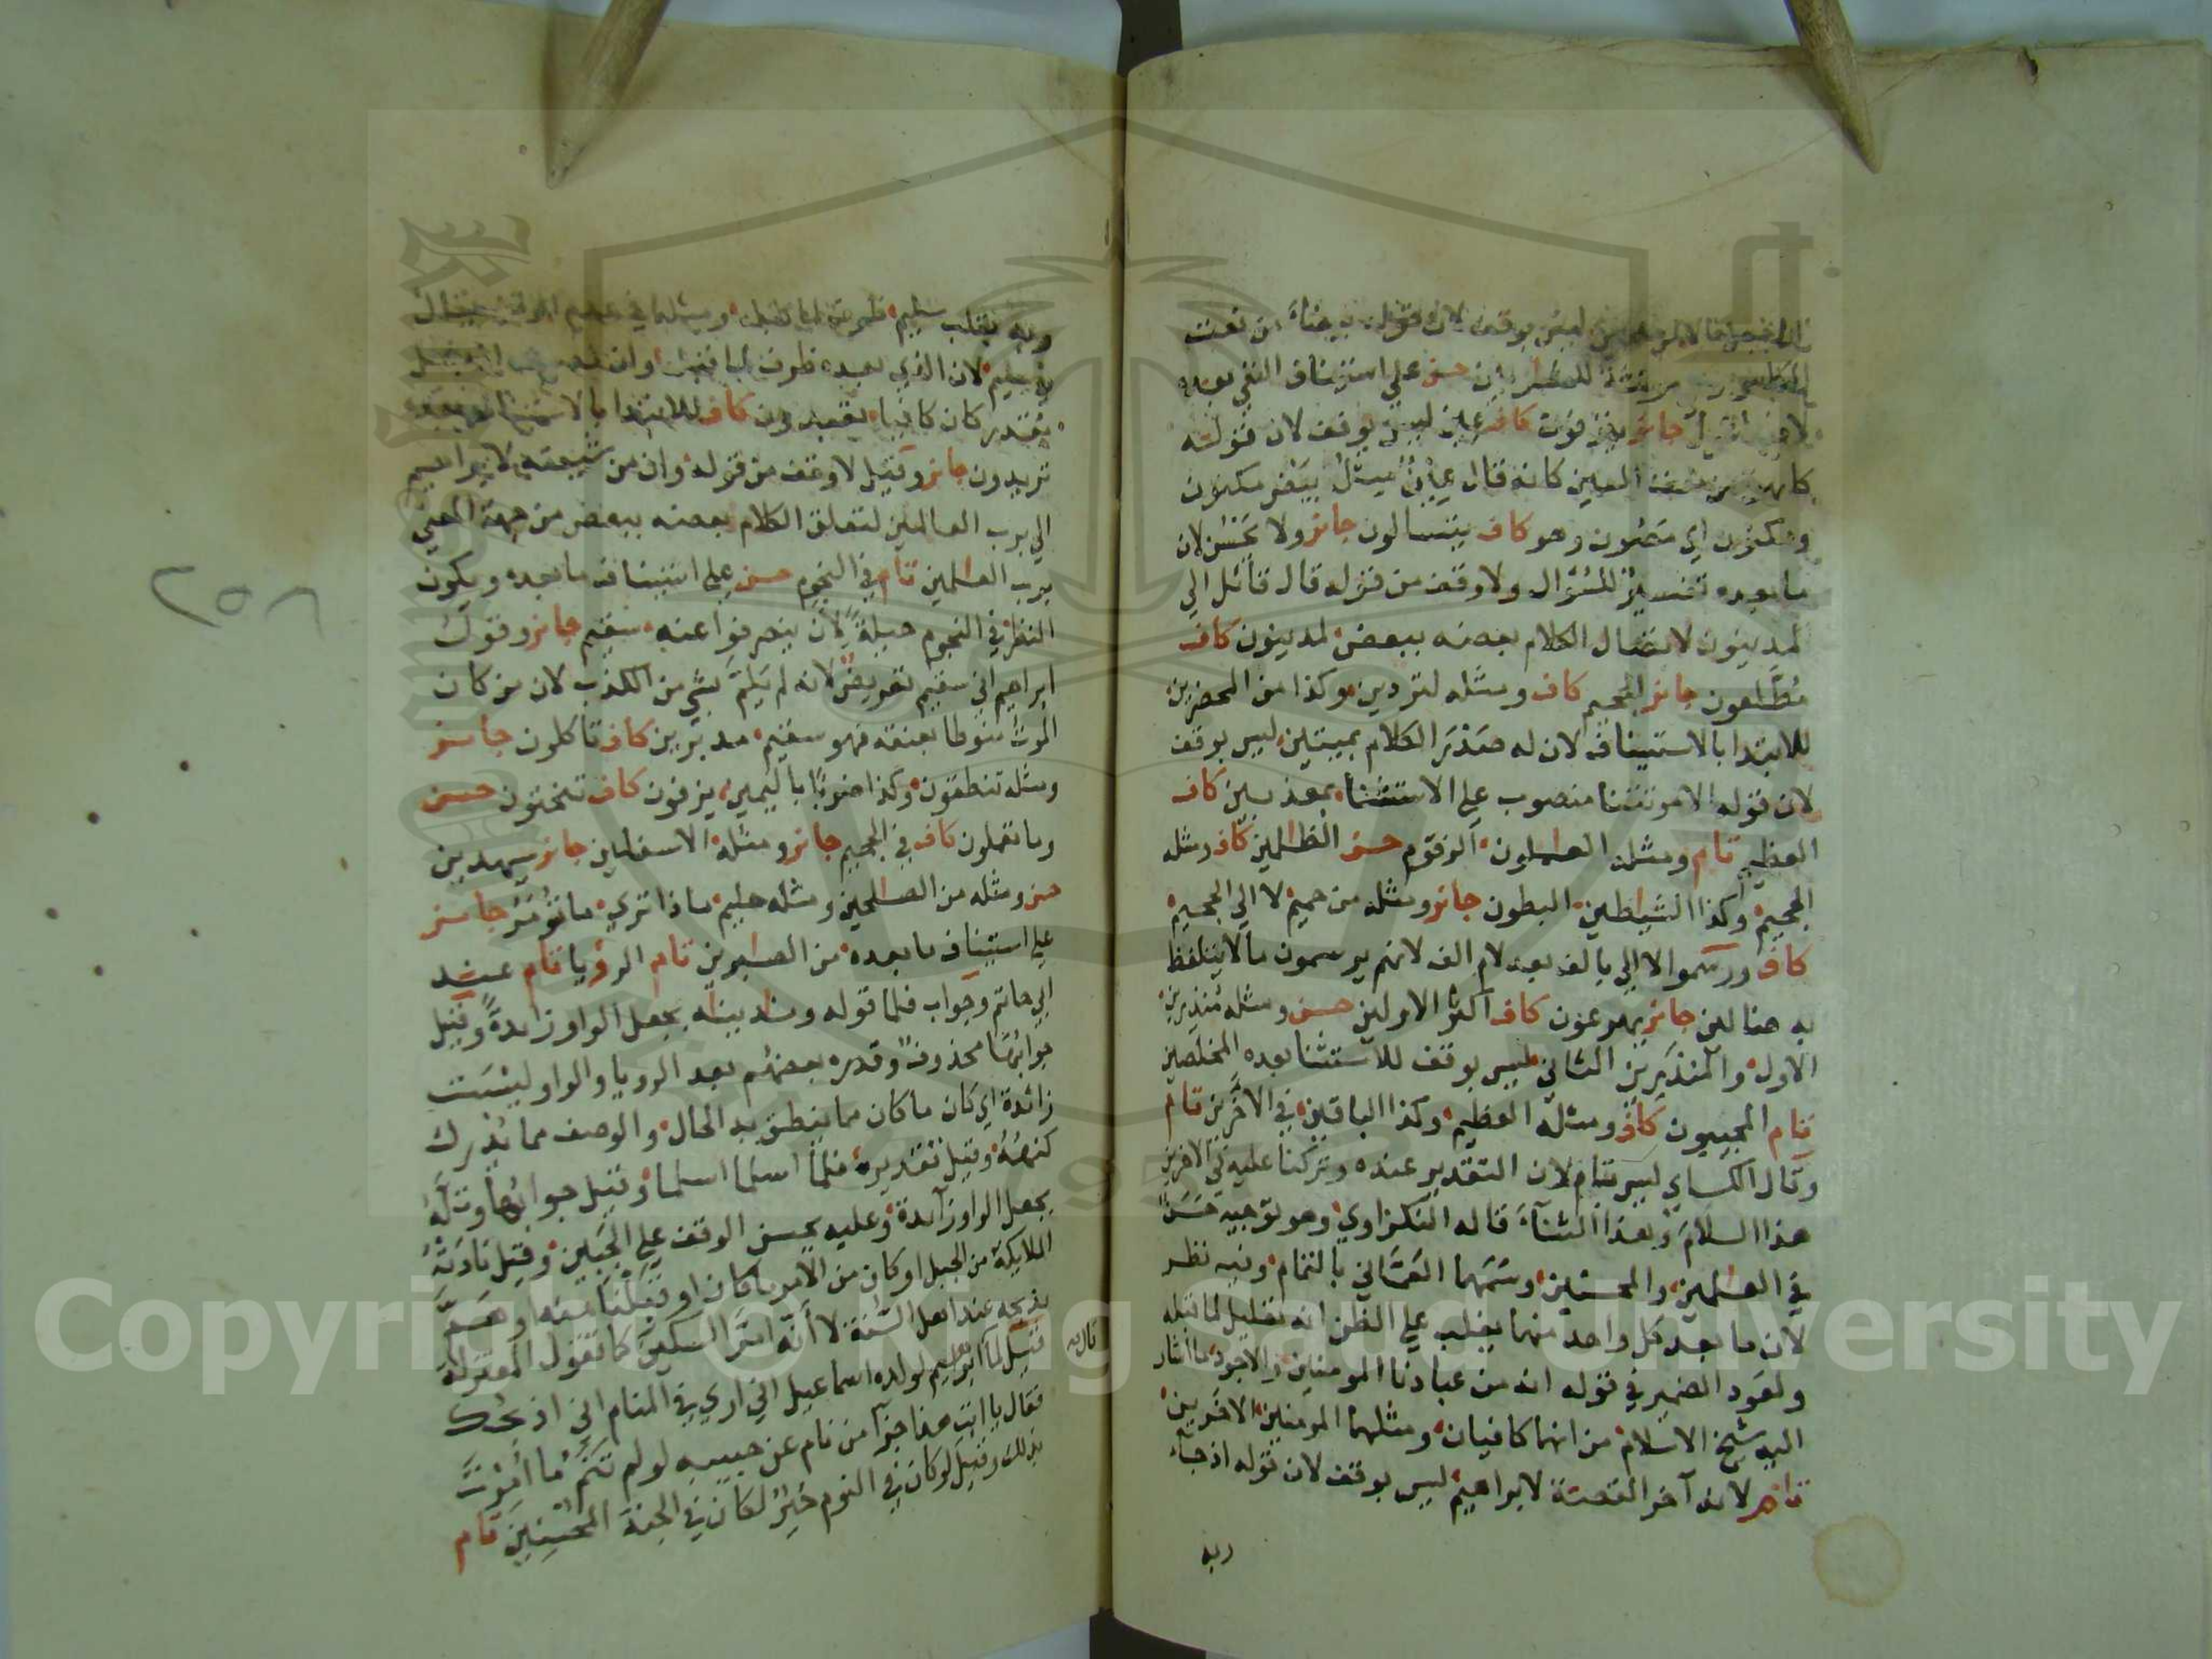 ليس بوقف لان قوله بيضاء من نعت
للشاربين حسن علي استيناف النفي بعده
جائز ينزفون كاف عين ليس بوقف لان قوله
كانهن من نعت العين كانه قال عين مثل بيض مكنون
ومكنون اي مصون وهو كاف يتسالون جائز ولا يحسن لان
ما بعده تفسير للسؤال ولا وقف من قوله قال قائل الي
لمدينون لاتصال الكلام بعضه ببعض لمدينون كاف
مطلعون جائز الجحيم كاف ومثله لتردين وكذا من المحضرين
للابتدا بالاستيناف لان له صدر الكلام بميتين ليس بوقف
لان قوله الا موتتنا منصوب علي الاستثنا بمعذبين كاف
العظيم تام ومثله العاملون الزقوم حسن الظالمين كاف ومثله
الجحيم وكذا الشياطين البطون جائز ومثله من حميم لا الي الجحيم
كاف ورسموا لا الي بالف بعد لام الف لانهم يرسمون ما لا يتلفظ
به ضالين جائز يهرعون كاف اكثر الاولين حسن ومثله منذرين
الاول والمنذرين الثاني ليس بوقف للاستثنا بعده المخلصين
تام المجيبون كاف ومثله العظيم وكذا الباقين في الاخرين تام
وقال الكساي ليس بتام لان التقدير عنده وتركنا عليه في الاخرين
هذا السلام وهذا الثناء قاله النكزاوي وهو توجيه حسن
في العالمين والمحسنين وسمهما العماني بالتمام وفيه نظر
لان ما بعد كل واحد منهما يغلب علي الظن انه تعليل لما قبله
ولعود الضمير في قوله انه من عبادنا المومنين والاجود ما اشار
اليه شيخ الاسلام من انهما كافيان ومثلهما المومنين الاخرين
تام لانه آخر القصة لابراهيم ليس بوقف لان قوله اذ جاء
ربه
ربه بقلب سليم
سليم لان الذي بعده ظرف لما قبله وان
بمقدر كان كافيا تعبدون كاف للابتدا بالاستفهام بعده
تريدون جائز وقيل لا وقف من قوله وان من شيعته لابراهيم
الي برب العالمين لتعلق الكلام بعضه ببعض من جهة المعني
برب العالمين تام في النجوم حسن علي استيناف ما بعده ويكون
النظر في النجوم حيلة لان ينصرفوا عنه سقيم جائز وقول
ابراهيم اني سقيم تعريض لانه لم يلم بشي من الكذب لان من كان
الموت منوطا بعنقه فهو سقيم مدبرين كاف تاكلون جائز
ومثله تنطقون وكذا ضربا باليمين يزفون كاف تنحتون حسن
وما تعملون كاف في الجحيم جائز ومثله الاسفلين جائز سيهدين
حسن ومثله من الصالحين ومثله حليم ماذا تري ما تؤمر جائز
علي استيناف ما بعده من الصابرين تام الرؤيا تام عند
ابي حاتم وجواب فلما قوله وناديناه بجعل الواو زائدة وقيل
جوابها محذوف وقدره بعضهم بعد الرويا والواو ليست
زائدة اي كان ما كان مما ينطق به الحال والوصف مما يدرك
كنهه وقيل تقديره فلما اسلما اسلما وقيل جوابها وتله
بجعل الواو زآئدة وعليه يحسن الوقف علي الجبين وقيل نادته
الملايكة من الجبل او كان من الامر ما كان او قبلنا منه او هم
بذبحه عند اهل السنة لا انه امر السكين كما تقول المعتزلة
قال به
قيل لما ابراهيم لولده اسماعيل اني اري في المنام اني اذبحك
فقال يا ابت هذا جزآ من نام عن حبيبه لو لم تنم ما امرت
بذلك وقيل لو كان في النوم خير لكان في الجنة المحسنين تام
٢٥٨
Copyright © King Saud University
1957